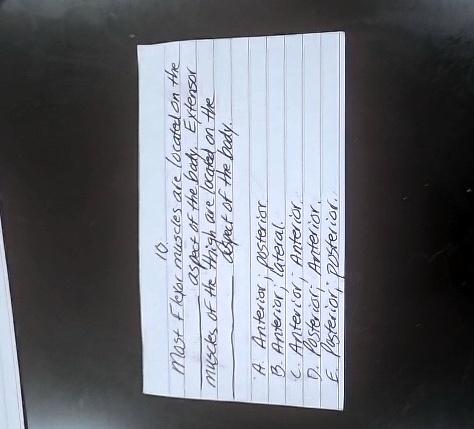 10.
Most Flexor muscles are located on the
________ aspect of the body. Extensor
muscles of the thigh are located on the
________ aspect of the body.
A. Anterior; posterior
B. Anterior; lateral.
C. Anterior; Anterior.
D. Posterior; Anterior.
E. Posterior; posterior.